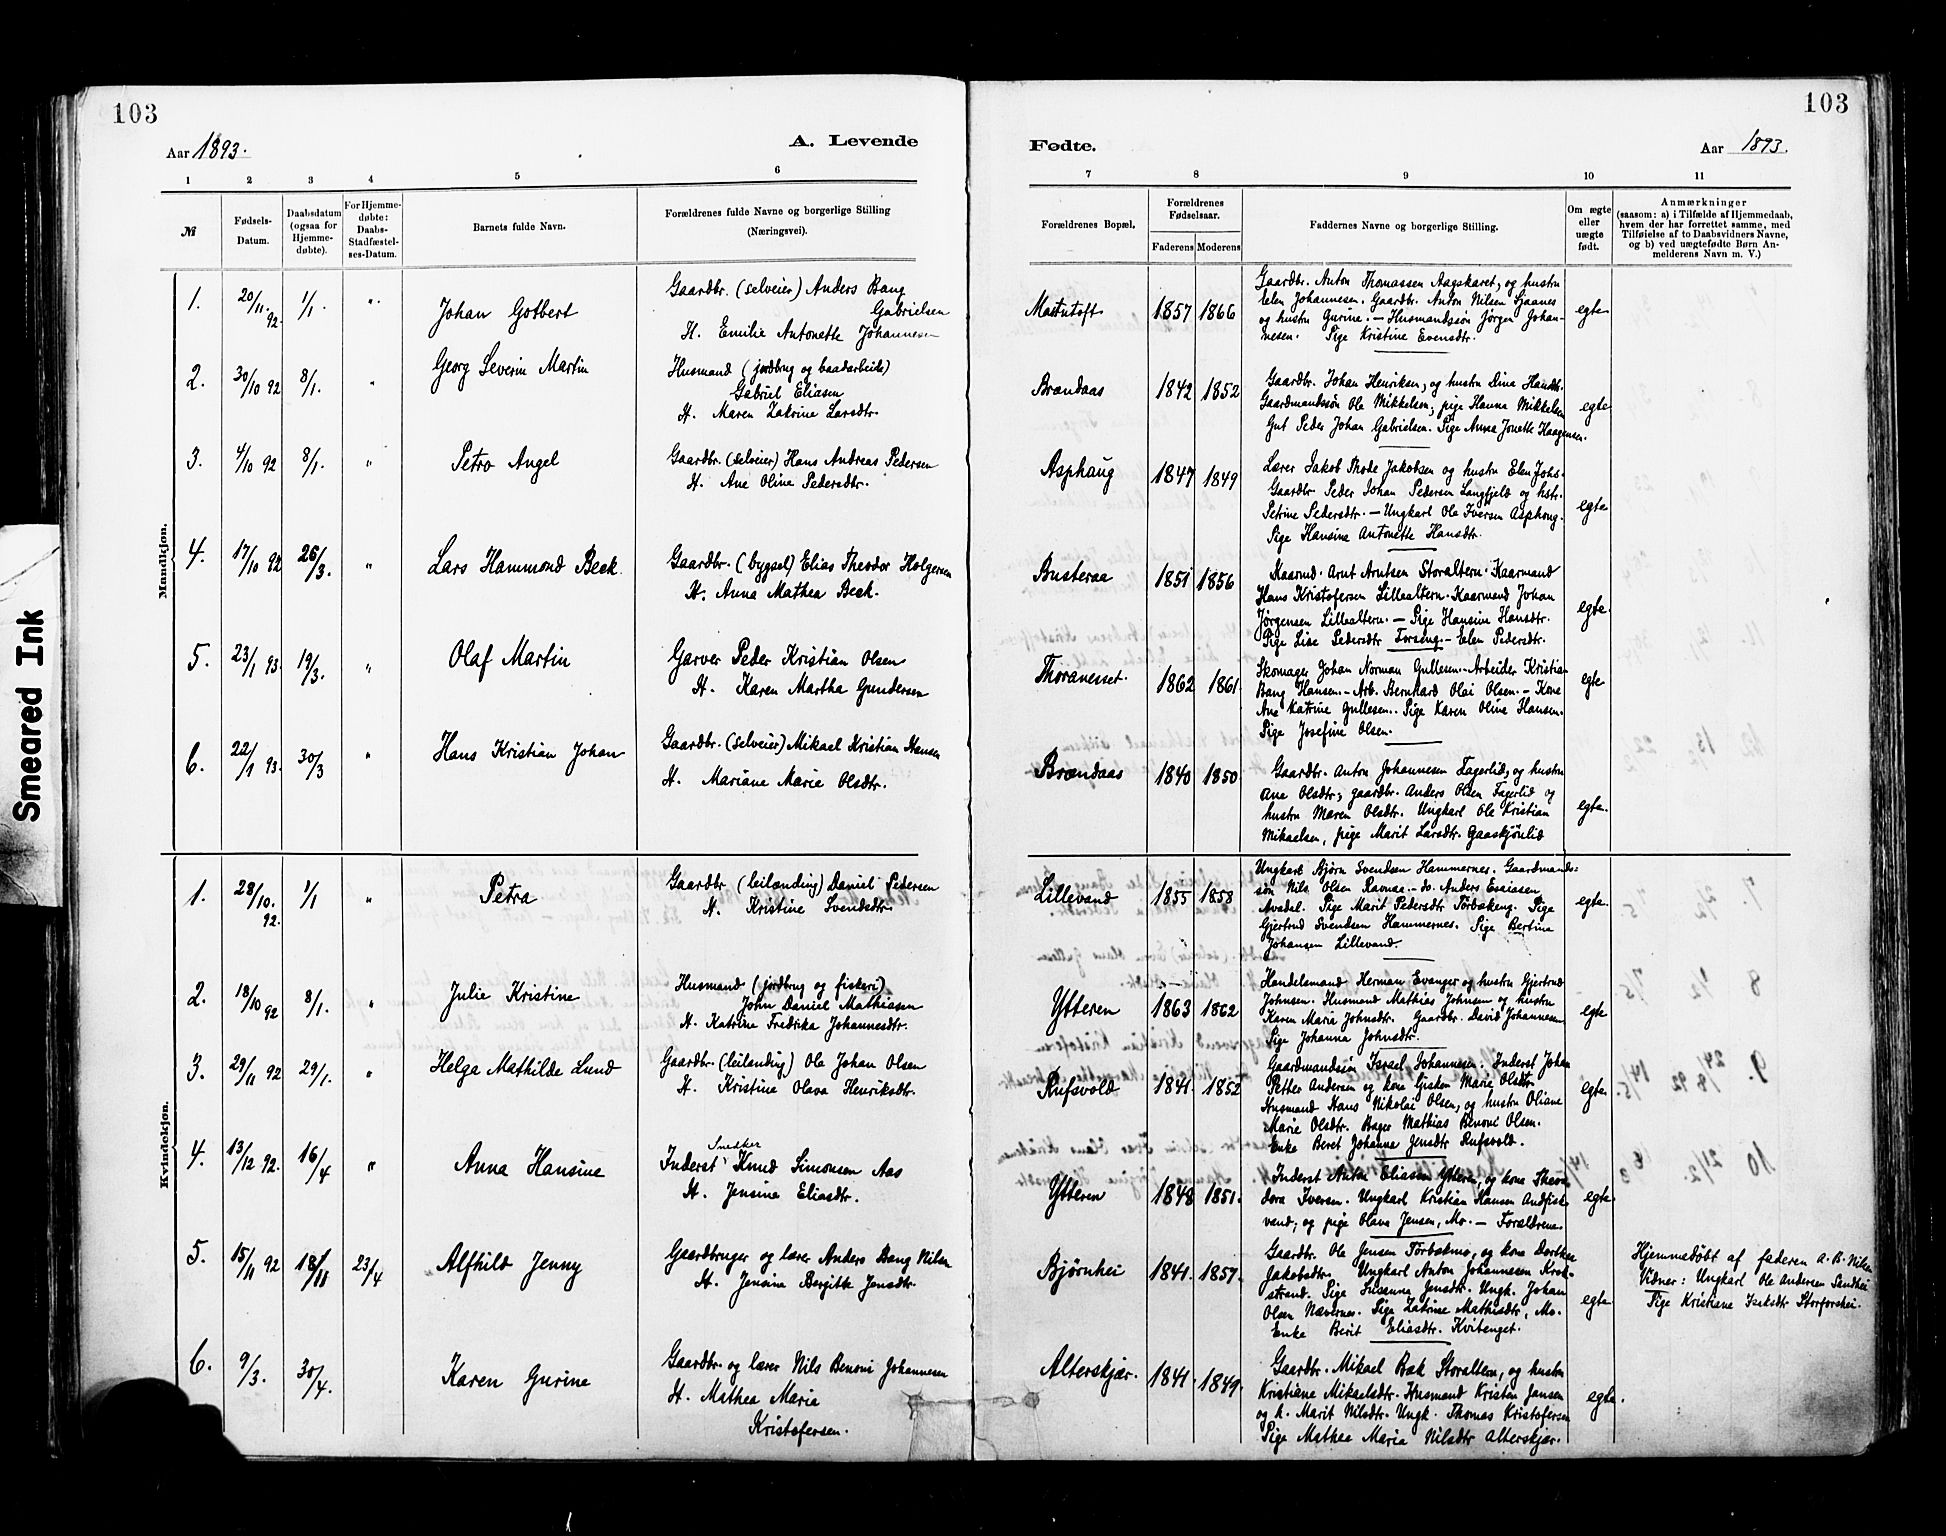 103
103
Aar 1893.
A. Levende
Fødte.
Aar 1893.
1 2 3 4 5 6
7 8 9 10 11
№
Fødsels-
Datum.
Daabsdatum
(ogsaa for
Hjemme-
døbte).
For Hjemme-
døbte:
Daabs-
Stadfæstel-
ses-Datum.
Barnets fulde Navn.
Forældrenes fulde Navne og borgerlige Stilling
(Næringsvei).
Forældrenes Bopæl.
Forældrenes
Fødselsaar.
Faderens
Moderens
Faddernes Navne og borgerlige Stilling.
Om ægte
eller
uægte
født.
Anmærkninger
(saasom: a) i Tilfælde af Hjemmedaab,
hvem der har forrettet samme, med
Tilføielse af to Daabsvidners Navne,
og b) ved uægtefødte Børn An-
melderens Navn m. V.)
Mandkjøn.
1. 20/11 92. 1/1. „ Johan Gotbert
Gaardbr. (selveier) Anders Bang
Gabrielsen
H. Emilie Antonette Johannesen
1857 1866
Gaardbr. Anton Thomassen Aagskaret, og hustru
Elen Johannesen. Gaardbr. Anton Nilsen
og hustru Gurine. – Husmandssøn Jørgen Johan-
nesen. Pige Kristine Evensdtr.
egte
2. 30/10 92 8/1. „ Georg Severin Martin
Husmand (jordbrug og baadarbeide)
Gabriel Eliasen
H. Maren Zakrine Larsdtr.
Brændaas 1842 1852
Gaardbr. Johan Henriksen, og hustru Dina Hansdtr.
Gaardmandssøn Ole Mikkelsen, pige Hanna Mikkelsen
Gut Peder Johan Gabrielsen. Pige Anna Jonette Haagensen.
egte
3. 4/10 92 8/1. „ Petro Angel
Gaardbr. (selveier) Hans Andreas Pedersen
H. Ane Oline Pedersdtr.
Asphaug 1847 1849
Lærer Jakob Thode Jakobsen og hustru Elen Johs.
Gaardbr. Peder Johan Pedersen Langfjeld og hstr.
Petrine Pedersdtr. – Ungkarl Ole Iversen Asphoug.
Pige Hansine Antonette Hansdtr.
egte
4. 17/10 92 26/3. „ Lars Hammond Beck
Gaardbr. (bygsel) Elias Theodor Holgersen
H. Anna Mathea Beck.
Busteraa 1851 1856
Kaarmd. Arnt Arntsen Storaltern. Kaarmand
Hans Kristofersen Lillealtern. Kaarmand Johan
Jørgensen Lillealtern. – Pige Hansine Hansdtr.
Pige Lise Pedersdtr Forseng. – Elen Pedersdtr.
egte
5. 23/1 93. 19/3. „ Olaf Martin
Garver Peder Kristian Olsen
H. Karen Martha Gundersen
Thoranesset. 1862 1861
Skomager Johan Norman Gullesen. – Arbeider Kristian
Bang Hansen. – Arb. Bernhard Olai Olsen. – Kone
Ane Katrine Gullesen. Pige Karen Oline Hansen.
Pige Josefine Olsen.
egte
6. 22/1 93. 30/3 „ Hans Kristian Johan
Gaardbr. (selveier) Mikael Kristian Hansen
H. Mariane Marie Olsdtr.
Brændaas 1840 1850
Gaardbr. Anton Johannesen Fagerlid, og hustru
Ane Olsdtr; gaardbr. Anders Olsen Fagerlid og
hustru Maren Olsdtr. Ungkarl Ole Kristian
Mikaelsen, pige Marit Larsdtr. Gaaskjønlid
egte.
Kvindekjøn.
1. 28/10. 92. 1/1 „ Petra
Gaardbr (leilænding) Daniel Pedersen
H. Kristine Svendsdtr.
Lillevand 1855 1858
Ungkarl Bjørn Svendsen Hammernes. Gaardmands-
søn Nils Olsen Ravnaa. – do. Anders Esaiasen
Avadal. Pige Marit Pedersdtr Torbækeng. Pige
Gjertrud Svendsen Hammernes. Pige Bertine
Johansen Lillevand.
egte.
2. 18/10 92 8/1. „ Julie Kristine
Husmand (jordbrug og fiskeri)
John Daniel Mathiasen
H. Katrine Fredrika Johannesdtr.
Ytteren 1863 1862
Handelsmand Herman Evanger og hustru Gjertrud
Johnsen. Husmand Mathias Johnsen og hustru
Karen Maria Johnsdtr. Gaardbr. David Johannesen
Pige Johanna Johnsdtr.
egte
3. 29/11 92 29/1. „ Helga Mathilde Lund
Gaardbr. (leilænding) Ole Johan Olsen
H. Kristina Olava Henriksdtr.
Rufsvold 1841. 1852
Gaardmandssøn Israel Johannesen. Inderst Johan
Petter Andersen og kone Gisken Marie Olsdtr.
Husmand Hans Nikolai Olsen, og hustru Oliane
Marie Olsdtr. Bager Mathias Benoni Olsen.
Enke Beret Johanna Jensdtr Rufsvold.
egte.
4. 13/12 92. 16/4 „ Anna Hansine
Snedker
Inderst Knud Simonsen Aas
H. Jensine Eliasdtr.
Ytteren 1848 1851.
Inderst Anton Eliassen Ytteren, og kone Theo-
dora Iversen. Ungkarl Kristian Hansen Andfisk-
vand; og pige Olava Jensen, Mo. – Forældrene.
egte.
5. 15/11 92 18/11 23/4 Alfhild Jenny
Gaardbruger og lærer Anders Bang Nilsen
H. Jensine Bergitte Jensdtr.
Bjørnhei 1841. 1857.
Gaardbr. Ole Jensen Torbækmo, og kone Dorthea
Jakobsdtr. Ungkarl Anton Johannessen Krok-
strand. Pige Susanna Jensdtr. Ungk. Johan
Olsen Nævernes. Pige Zakrine Mathisdtr, Mo.
Enke Berit Eliasdtr. Kvitenget.
egte
Hjemmedøbt af faderen A. B. Nilsen
Vidner: Ungkarl Ole Andersen Sandhei
Pige Kristiane Isaksdtr Storforshei.
6. 9/3. 30/4. Karen Gurine
Gaardbr. og lærer Nils Benoni Johannesen
H. Mathea Maria
Kristofersen.
Alterskjær. 1841. 1849.
Gaardbr. Mikael Bæk Storaltern, og hustru
Kristiane Mikaelsdtr. Husmand Kristen Jansen
og h. Marit Nilsdtr. Ungk. Thomas Kristofersen
Pige Mathea Maria Nilsdtr Alterskjær.
egte.
Smeared Ink